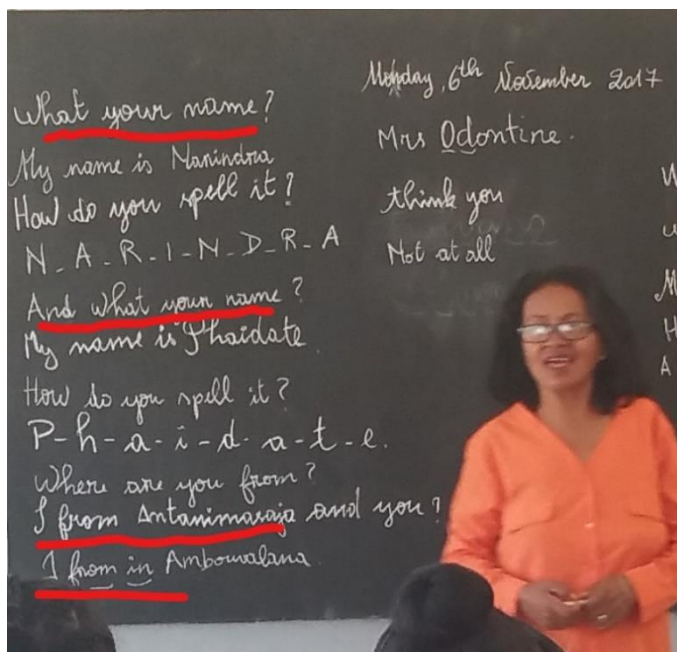 What your name?
My name is Narindra
How do you spell it?
N-A-R-I-N-D-R-A
And what your name?
My name is Phaidate.
How do you spell it?
P-h-a-i-d-a-t-e.
Where are you from?
I from Antanimasaja and you?
I from in Ambovalana.
Monday, 6th November 2017
Mrs Odontine.
think you
Not at all
W
M
H
A